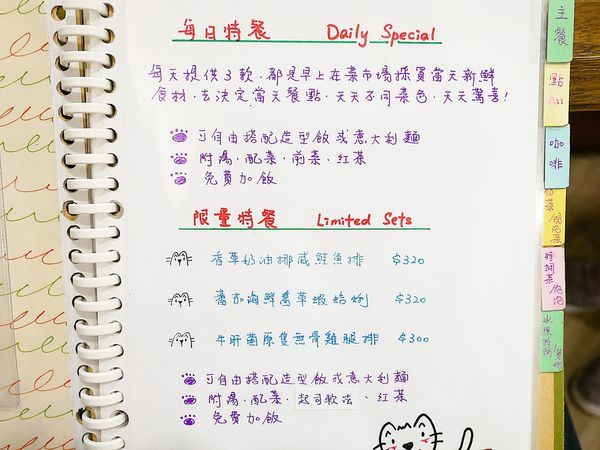 每日特餐 Daily Special
每天提供3款,都是早上在菜市場採買當天新鮮
食材,去決定當天餐點,天天不同菜色,天天驚喜!
可自由搭配造型飯或意大利麵
附湯.配菜.前菜.紅茶
免費加飯
限量特餐 Limited Sets
香草奶油挪威鮭魚排 $320
蕃茄海鮮薑草蝦蛤蜊 $320
牛肝菌原隻無骨雞腿排 $300
可自由搭配造型飯或意大利麵
附湯.配菜.起司軟法、紅茶
免費加飯
主餐
點心
咖啡
特調茶/泡泡